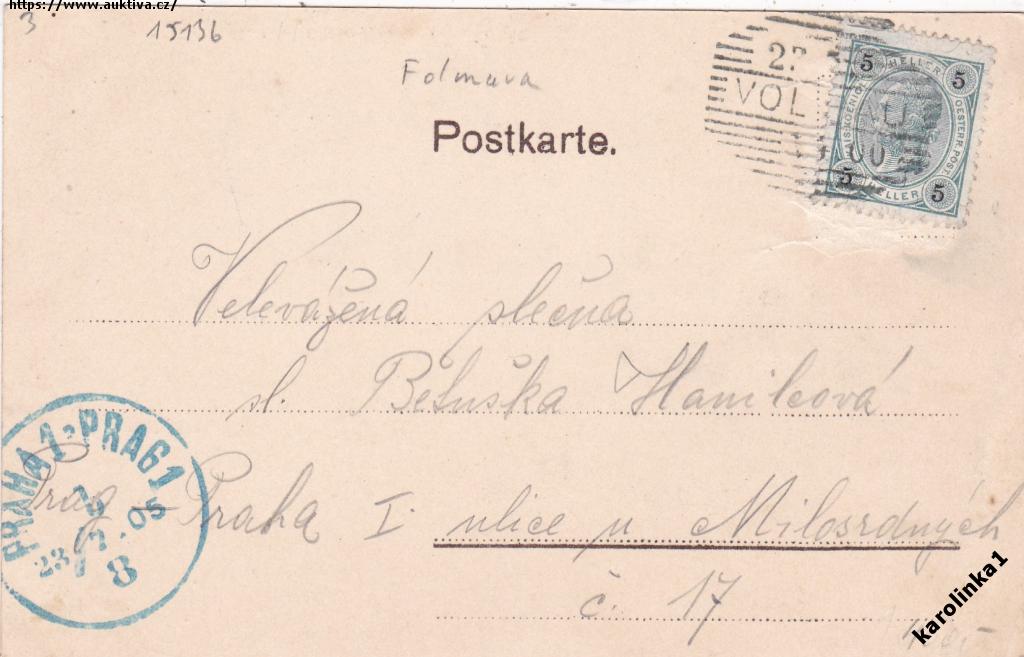 https://www.auktiva.cz/
3
15136
Folmava
Postkarte.
22
VOL
U
00
5 HELLER 5
OESTERR.POST
5 HELLER 5
Velevážená slečna
sl. Bětuška Hamilcová
Prag – Praha I. ulice u Milosrdných
č. 17
PRAHA 1 · PRAG 1
23 7. 05
8
karolinka1